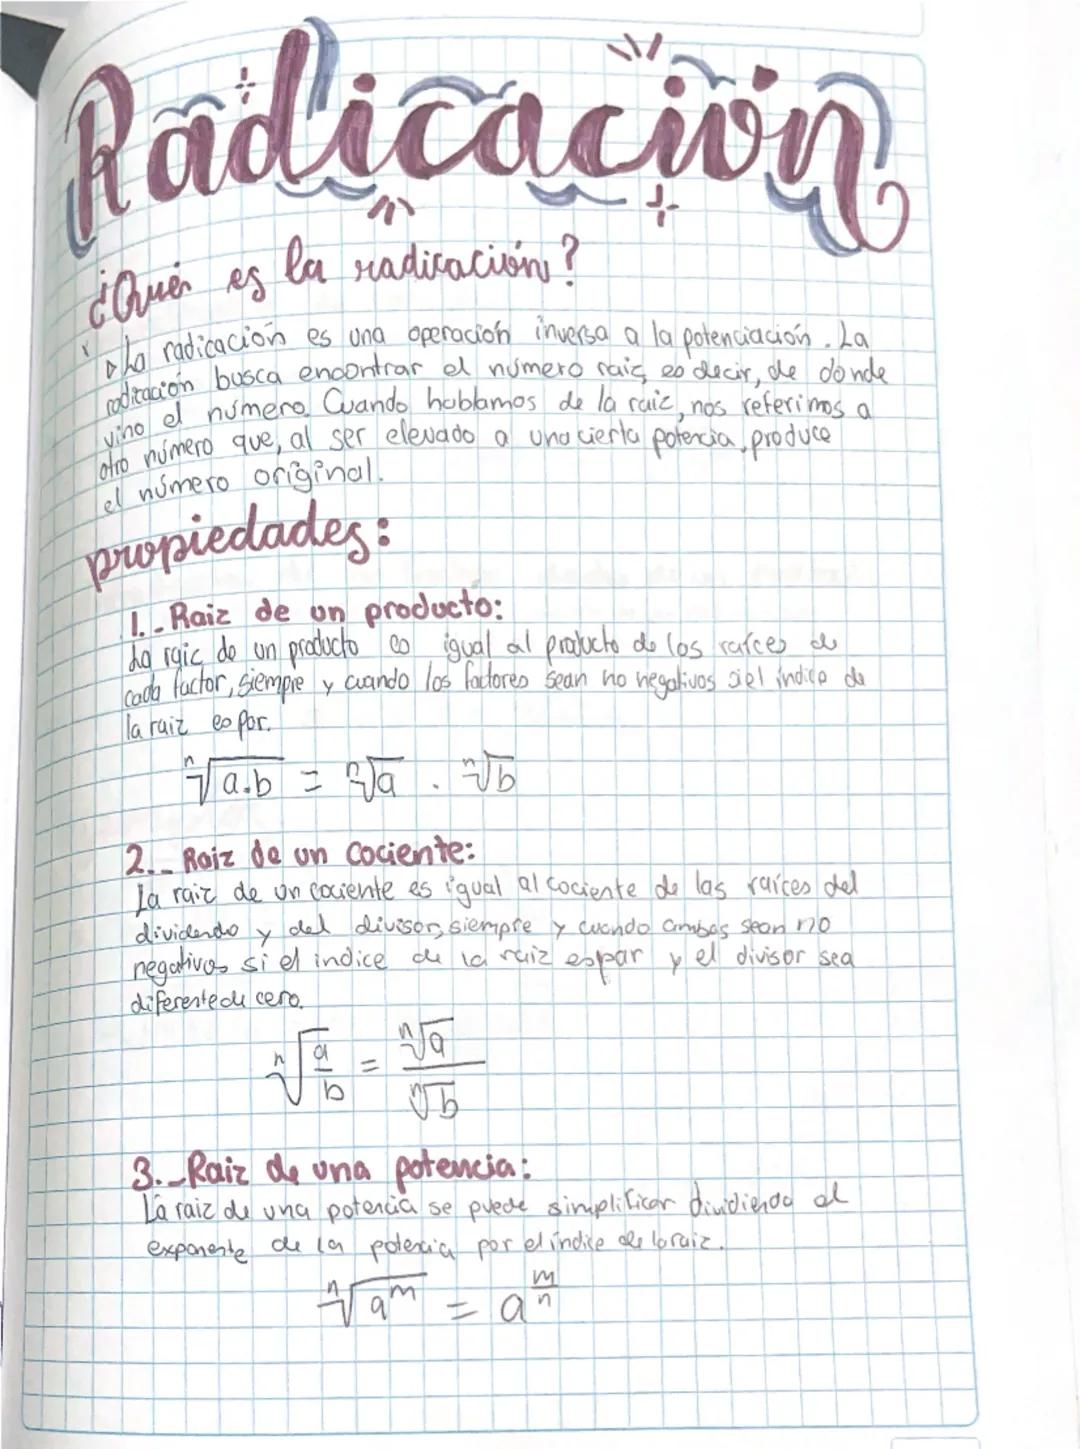 Radicación
¿Qué es la radicación?
La radicación es una operación inversa a la potenciación. La
radicación busca encontrar el número raiz, es decir, de dónde
vino el número. Cuando hablamos de la raiz, nos referimos a
otro número que, al ser elevado a una cierta potencia, produce
el número original.
propiedades:
1.- Raiz de un producto:
La raiz de un producto es igual al producto de las raíces de
cada factor, siempre y cuando los factores sean no negativos si el índice de
la raiz es par.
ⁿ√a.b = ⁿ√a . ⁿ√b
2.- Raiz de un cociente:
La raiz de un cociente es igual al cociente de las raíces del
dividendo y del divisor, siempre y cuando ambas sean no
negativos si el indice de la raiz es par y el divisor sea
diferente de cero.
ⁿ√a/b = ⁿ√a / ⁿ√b
3.- Raiz de una potencia:
La raiz de una potencia se puede simplificar dividiendo el
exponente de la potencia por el índice de la raiz.
ⁿ√aᵐ = a^m/n